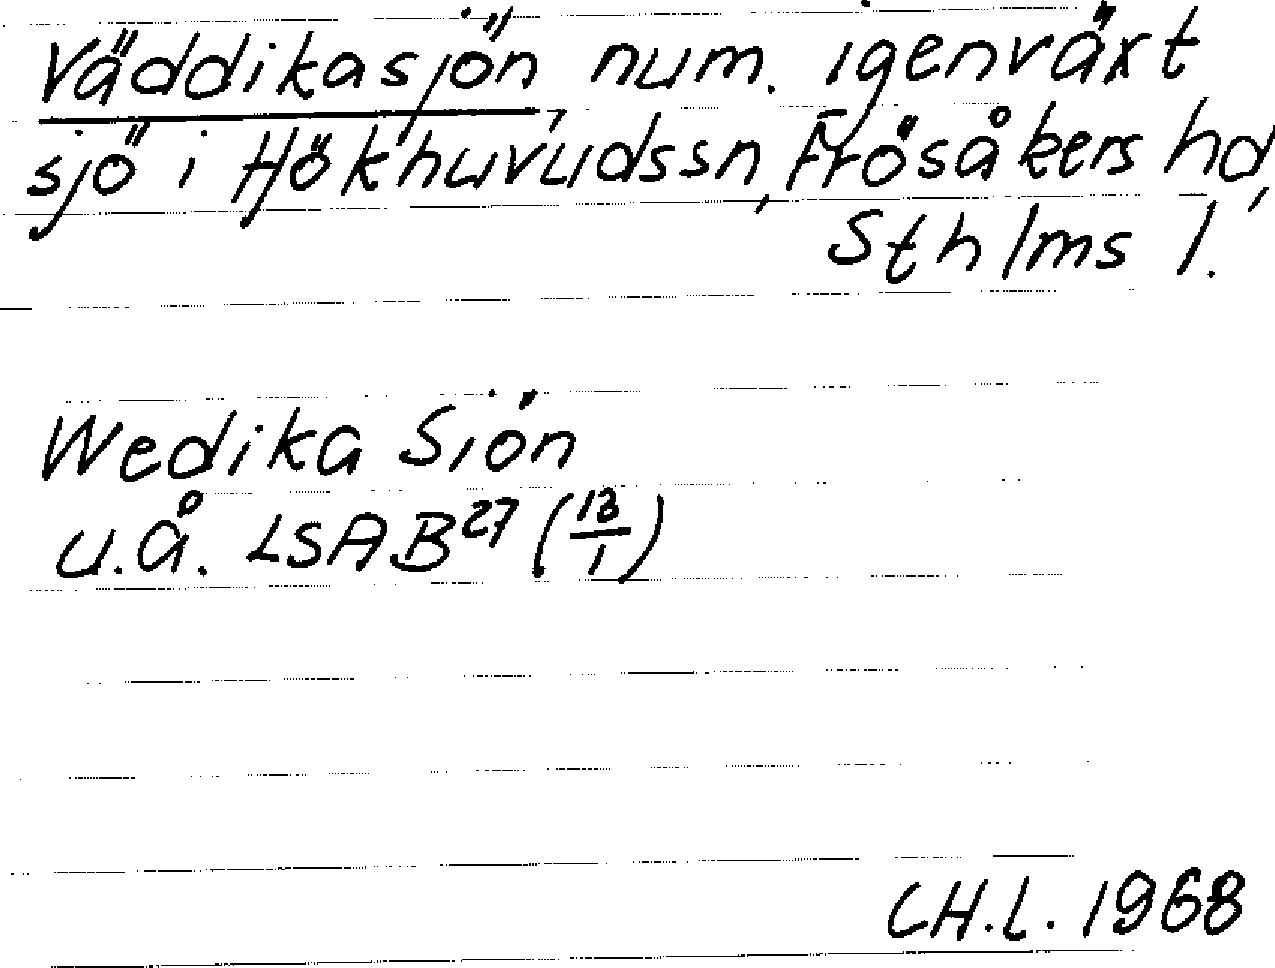 Väddikasjön, num. igenväxt
sjö i Hökhuvudssn, Frösåkers hd,
Sthlms l.
Wedika Siön
u.å. LSA B27 (13/1)
CH.L. 1968